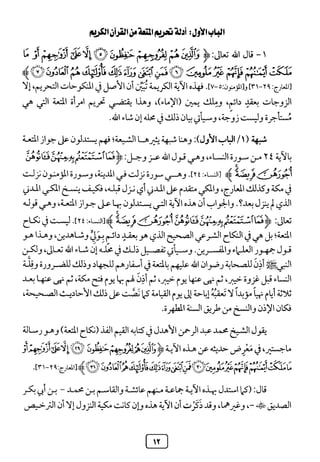 الباب الأول: أدلة تحريم المتعة من القرآن الكريم
١- قال الله تعالى: ﴿ وَالَّذِينَ هُمْ لِفُرُوجِهِمْ حَافِظُونَ ۝٥ إِلَّا عَلَىٰ أَزْوَاجِهِمْ أَوْ مَا
مَلَكَتْ أَيْمَانُهُمْ فَإِنَّهُمْ غَيْرُ مَلُومِينَ ۝٦ فَمَنِ ابْتَغَىٰ وَرَاءَ ذَٰلِكَ فَأُولَٰئِكَ هُمُ الْعَادُونَ ۝٧ ﴾
[المعارج: ٢٩-٣١] و[المؤمنون: ٥-٧]. فهذه الآية الكريمة تُبيِّن أن الأصل في المنكوحات التحريم، إلا
الزوجات بعقدٍ دائمٍ، ومِلك يمين (الإماء)، وهذا يقتضي تحريم امرأة المتعة التي هي
مُستأجرة وليست زوجة، وسيأتي بيان ذلك في محله إن شاء الله.
شبهة (١/ الباب الأول): وهنا شبهة يثيرها الشيعة؛ فهم يستدلون على جواز المتعة
بالآية ٢٤ من سورة النساء، وهي قول الله عز وجل: ﴿فَمَا اسْتَمْتَعْتُم بِهِ مِنْهُنَّ فَآتُوهُنَّ
أُجُورَهُنَّ فَرِيضَةً ﴾ [النساء: ٢٤]. وهي سورة نزلت في المدينة، وسورة المؤمنون نزلت
في مكة وكذلك المعارج، والمكي متقدم على المدني أي نزل قبله، فكيف ينسخ المكي المدني
الذي لم ينزل بعد؟. والجواب أن هذه الآية التي يستدلون بها على جواز المتعة، وهي قوله
تعالى: ﴿فَمَا اسْتَمْتَعْتُم بِهِ مِنْهُنَّ فَآتُوهُنَّ أُجُورَهُنَّ فَرِيضَةً﴾ [النساء: ٢٤]. ليست في نكاح
المتعة؛ بل هي في النكاح الشرعي الصحيح الذي هو بعقدٍ دائمٍ بِوَليٍّ وشاهدين، وهذا هو
قول جمهور العلماء والمفسرين. وسيأتي تفصيل ذلك في محله إن شاء الله تعالى، ولكن
النبي ﷺ أَذِنَ للصحابة رضوان الله عليهم بالمتعة في أسفارهم للجهاد وذلك للضرورة وقِلَّة
النساء قبل غزوة خيبر، ثم نهى عنها يوم خيبر، ثم أَذِنَ لهم بها يوم فتح مكة، ثم نهى عنها بعد
ثلاثة أيام نهياً مؤبداً لا تعقبهُ إباحة إلى يوم القيامة كما نصَّت على ذلك الأحاديث الصحيحة،
فكان الإذن والنسخ من طريق السنة المطهرة.
يقول الشيخ محمد عبد الرحمن الأهدل في كتابه القيم الفذ (نكاح المتعة) وهو رسالة
ماجستير، في مَعْرِض حديثه عن هذه الآية ﴿ وَالَّذِينَ هُمْ لِفُرُوجِهِمْ حَافِظُونَ ۝٢٩ إِلَّا عَلَىٰ أَزْوَاجِهِمْ أَوْ
مَا مَلَكَتْ أَيْمَانُهُمْ فَإِنَّهُمْ غَيْرُ مَلُومِينَ ۝٣٠ فَمَنِ ابْتَغَىٰ وَرَاءَ ذَٰلِكَ فَأُولَٰئِكَ هُمُ الْعَادُونَ ۝٣١﴾ [المعارج: ٢٩-٣١].
قال: (كما استدل بهذه الآية جماعة منهم عائشة والقاسم بن محمد - بن أبي بكر
الصديق -، وغيرهما، وقد ذَكَرْت أن الآية هذه وإن كانت مكية النزول إلا أن الترخيص
١٢